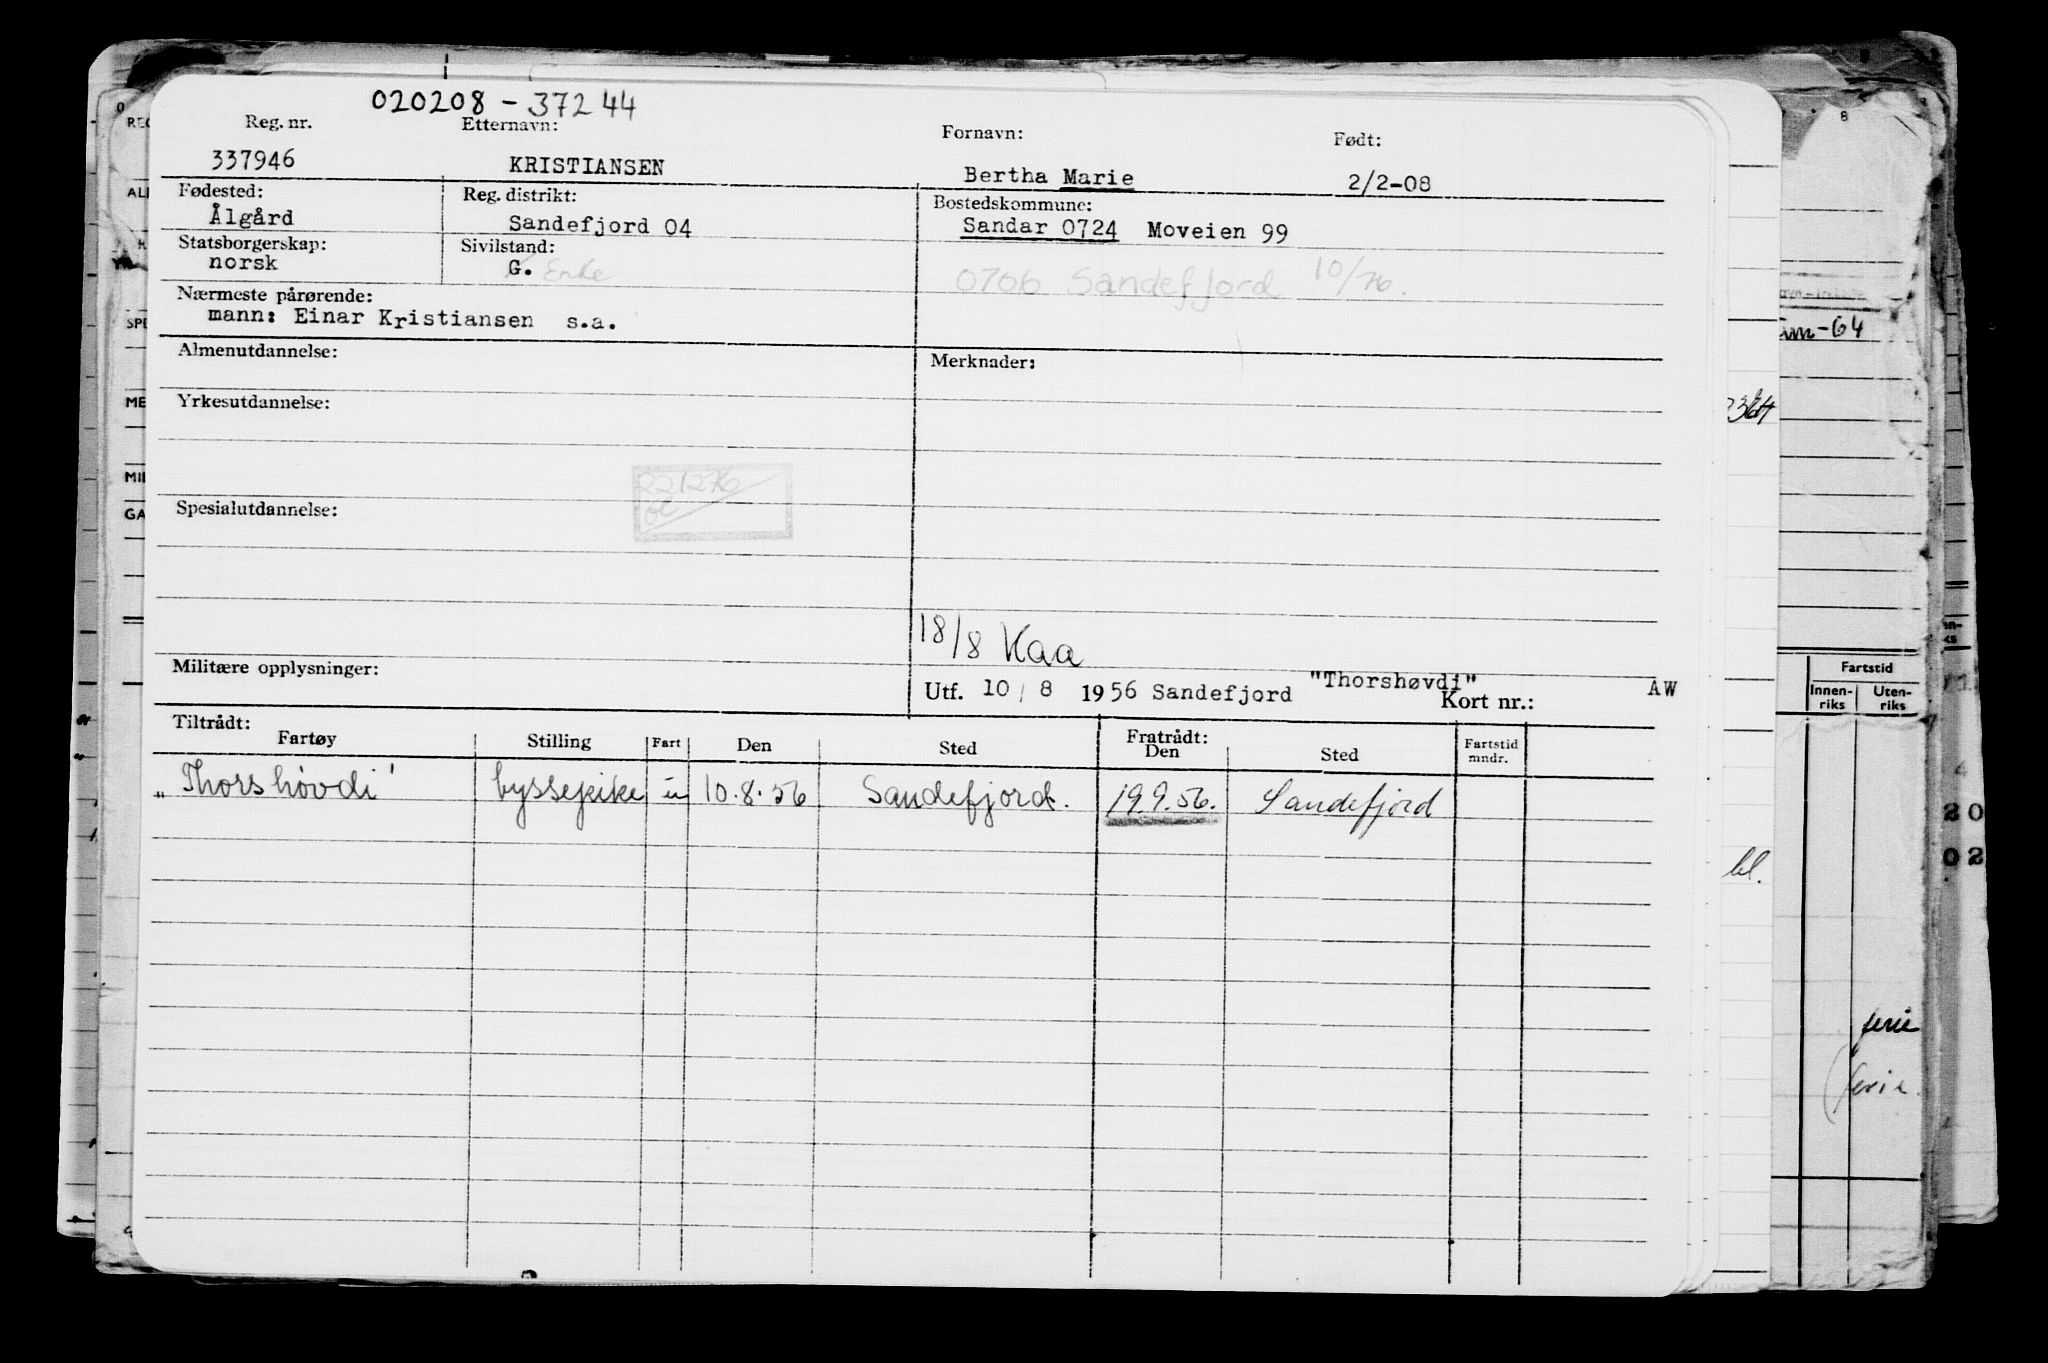 020208 - 37244
Reg. nr. Etternavn: Fornavn: Født:
337946 KRISTIANSEN Bertha Marie 2/2-08
Fødested: Reg. distrikt: Bostedskommune:
Ålgård Sandefjord 04 Sandar 0724 Moveien 99
Statsborgerskap: Sivilstand:
norsk G. Enke 0706 Sandefjord 10/76.
Nærmeste pårørende:
mann: Einar Kristiansen s.a.
Almenutdannelse: Merknader:
Yrkesutdannelse:
221276
OC
Spesialutdannelse:
18/8 Kaa
Militære opplysninger:
Utf. 10/8 1956 Sandefjord "Thorshøvdi" Kort nr.: AW
Tiltrådt: Fratrådt:
Fartøy Stilling Fart Den Sted Den Sted Fartstid mndr.
"Thorshövdi" byssepike u 10.8.56 Sandefjord. 19.9.56. Sandefjord
8
REG
SPE
ME
MIL
GA
-64
Fartstid
Innen-
riks
Uten-
riks
20
bl.
02
ferie
ferie.